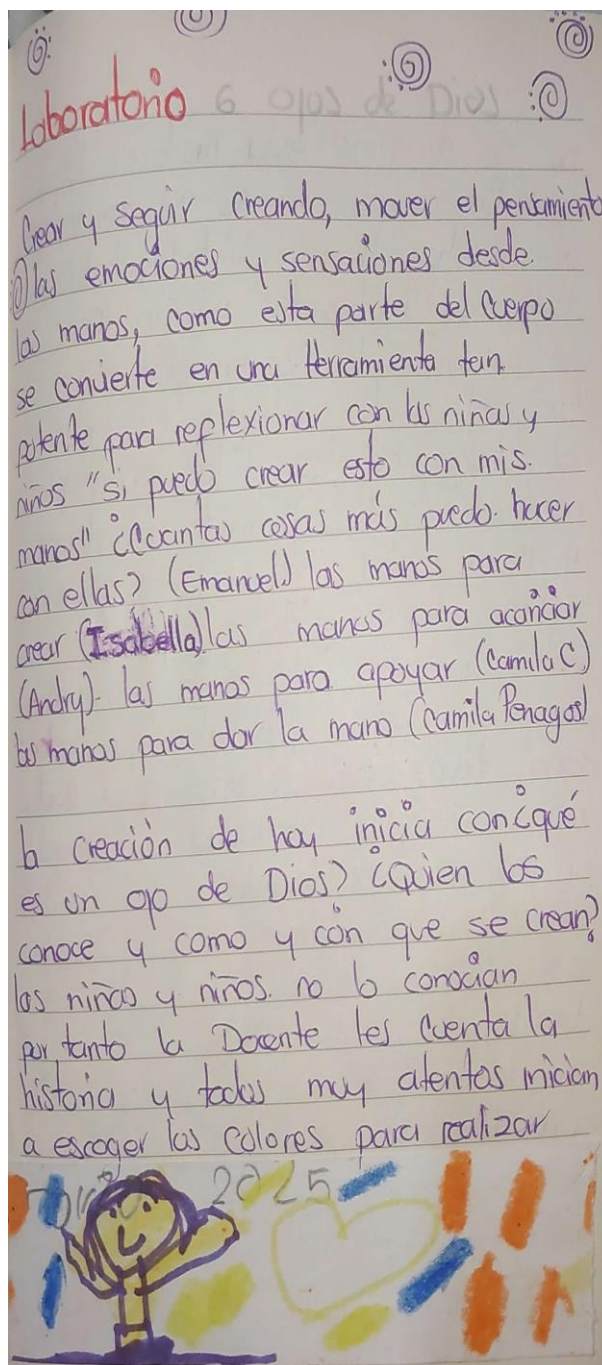 Laboratorio 6 ojos de Dios
Crear y seguir creando, mover el pensamiento
las emociones y sensaciones desde
las manos, como esta parte del cuerpo
se convierte en una herramienta tan
potente para reflexionar con las niñas y
niños "si puedo crear esto con mis
manos" ¿Cuantas cosas más puedo hacer
con ellas? (Emanuel) las manos para
crear (Isabella) las manos para acariciar
(Andry). las manos para apoyar (Camila C)
las manos para dar la mano (Camila Penagos)
la creación de hoy inicia con ¿qué
es un ojo de Dios? ¿Quien los
conoce y como y con que se crean?
las niñas y niños. no lo conocian
por tanto la Docente les cuenta la
historia y todos muy atentos inician
a escoger los colores para realizar
2025